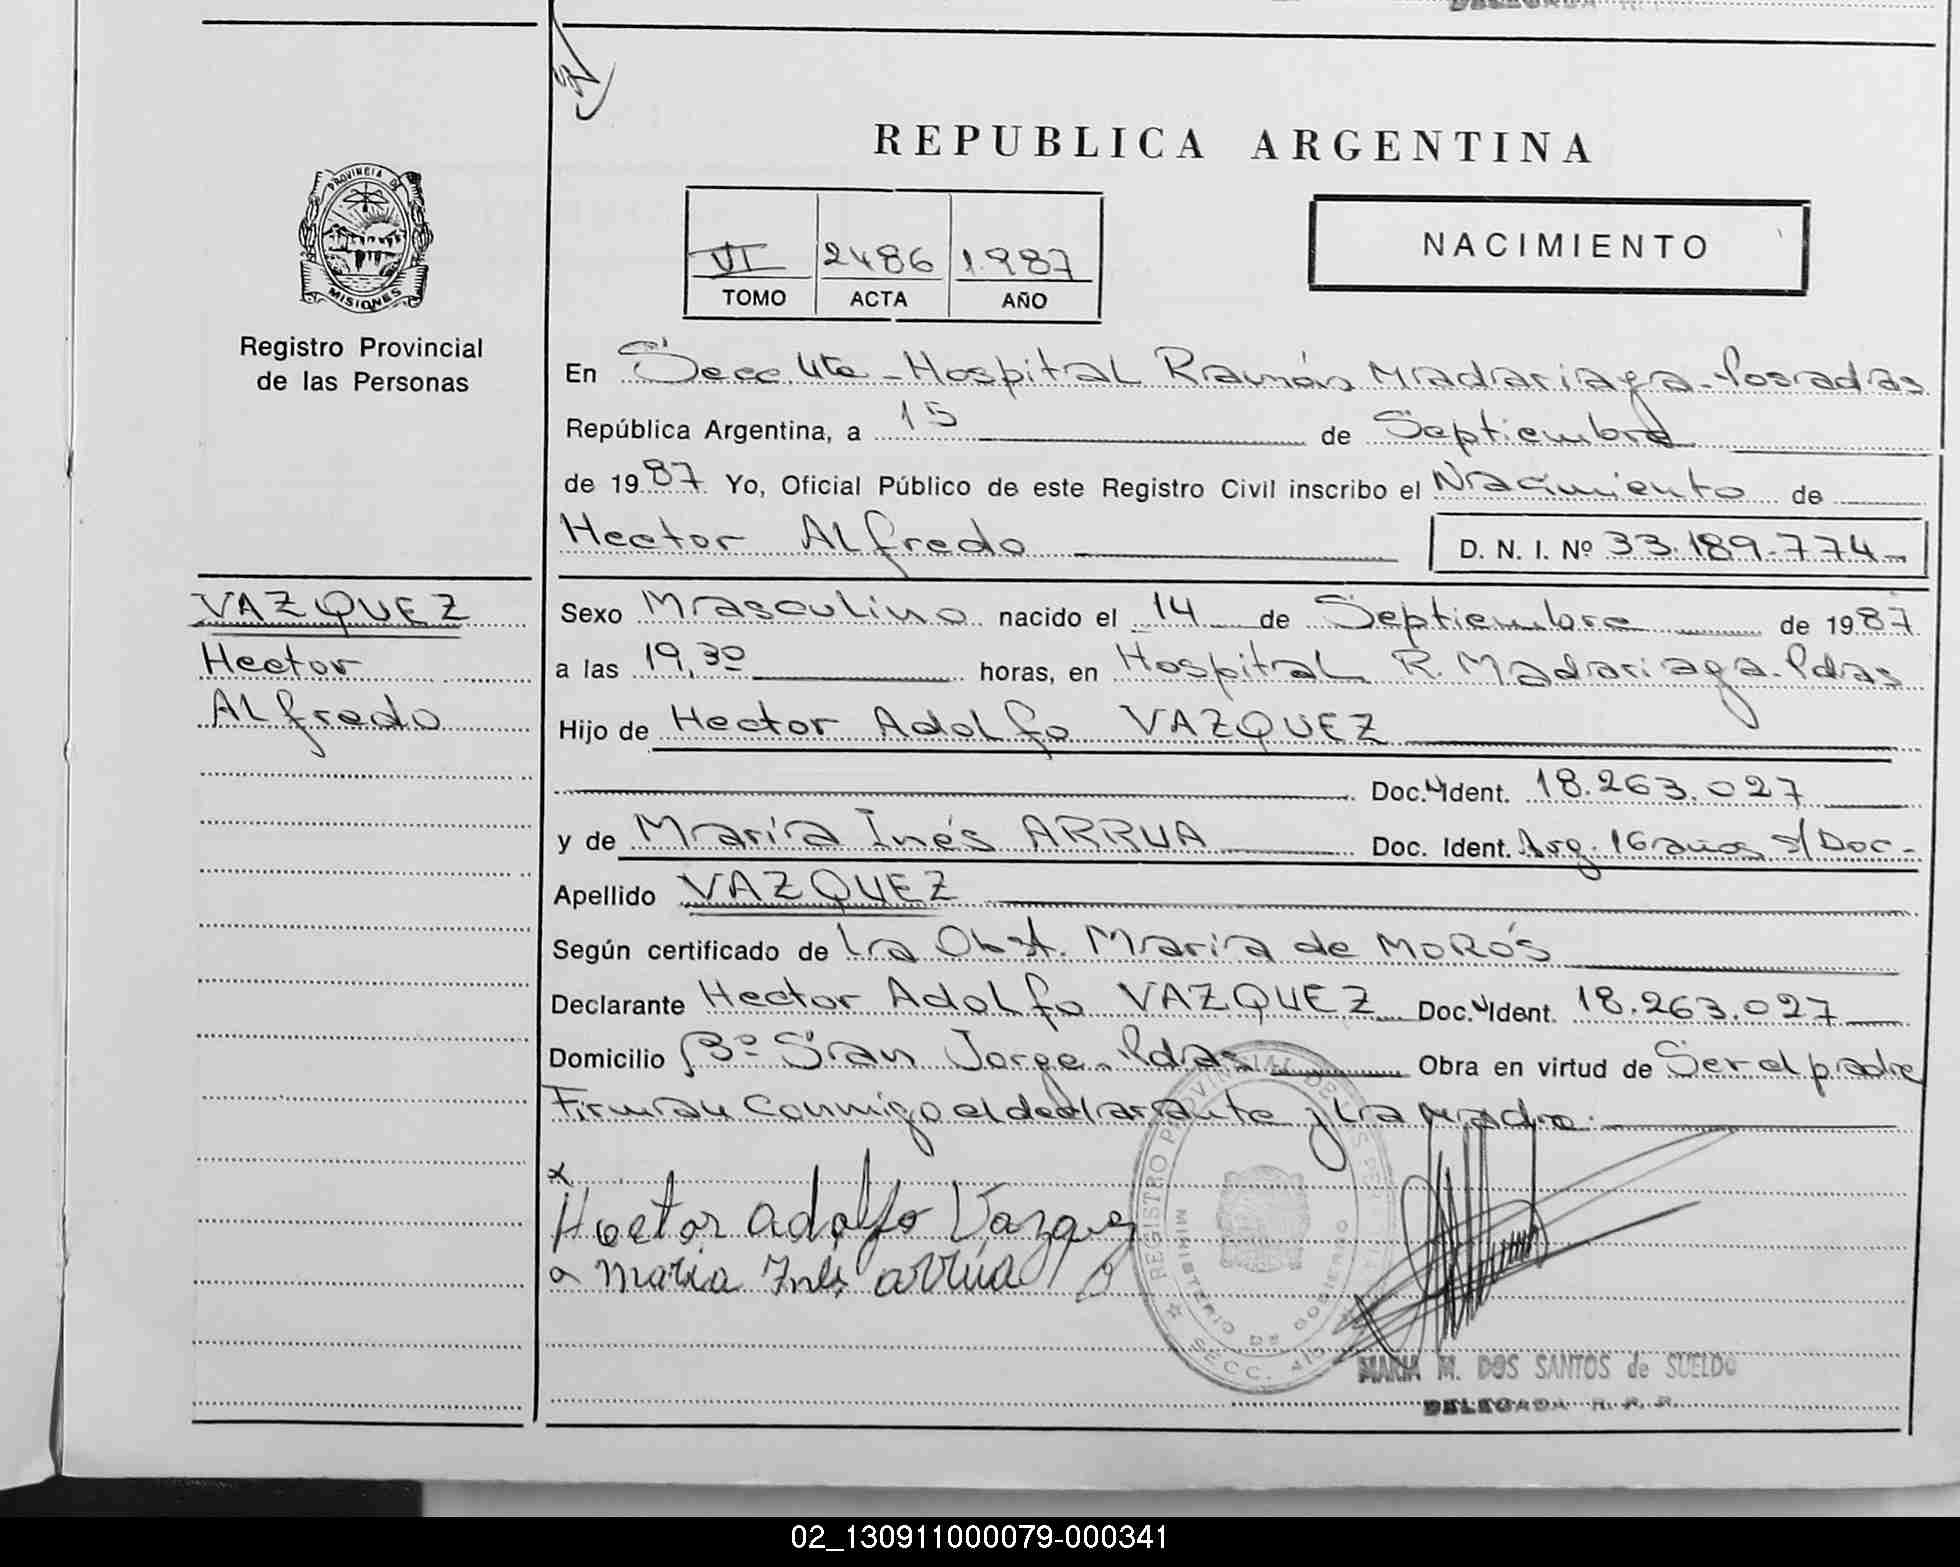 REPUBLICA ARGENTINA
PROVINCIA DE
MISIONES
Registro Provincial
de las Personas
VI 2486 1.987
TOMO ACTA AÑO
NACIMIENTO
En Secc. 4ta - Hospital Ramón Madariaga - Posadas
República Argentina, a 15 de Septiembre
de 1987 Yo, Oficial Público de este Registro Civil inscribo el Nacimiento de
Hector Alfredo D. N. I. Nº 33.189.774
VAZQUEZ
Hector
Alfredo
Sexo Masculino nacido el 14 de Septiembre de 1987
a las 19,30 horas, en Hospital R. Madariaga. Pdas
Hijo de Hector Adolfo VAZQUEZ
Doc. Ident. 18.263.027
y de María Inés ARRUA Doc. Ident. Arg. 16 años s/Doc -
Apellido VAZQUEZ
Según certificado de la Obst. María de MoRós
Declarante Hector Adolfo VAZQUEZ Doc. Ident. 18.263.027
Domicilio Bº San Jorge. Pdas Obra en virtud de Ser el padre
Firman Conmigo el declarante y la madre.
Hector adolfo Vazquez
maria Inés arrúa
REGISTRO PROVINCIAL DE LAS PERSONAS
MINISTERIO DE GOBIERNO
SECC.
MARIA M. DOS SANTOS de SUELDO
DELEGADA R. P. P.
02_130911000079-000341